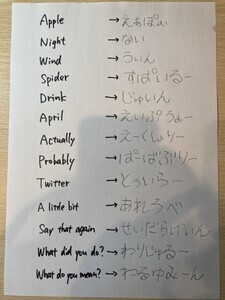 Apple → えぁぽぉ
Night → ない
Wind → うぃん
Spider → すぱいるー
Drink → じゅいん
April → えいぷぅぉー
Actually → えーくしょりー
Probably → ぱーばぶりー
Twitter → とぅいらー
A little bit → あれろべ
Say that again → せいだらげいん
What did you do? → わりじゅるー
What do you mean? → わるゆみーん